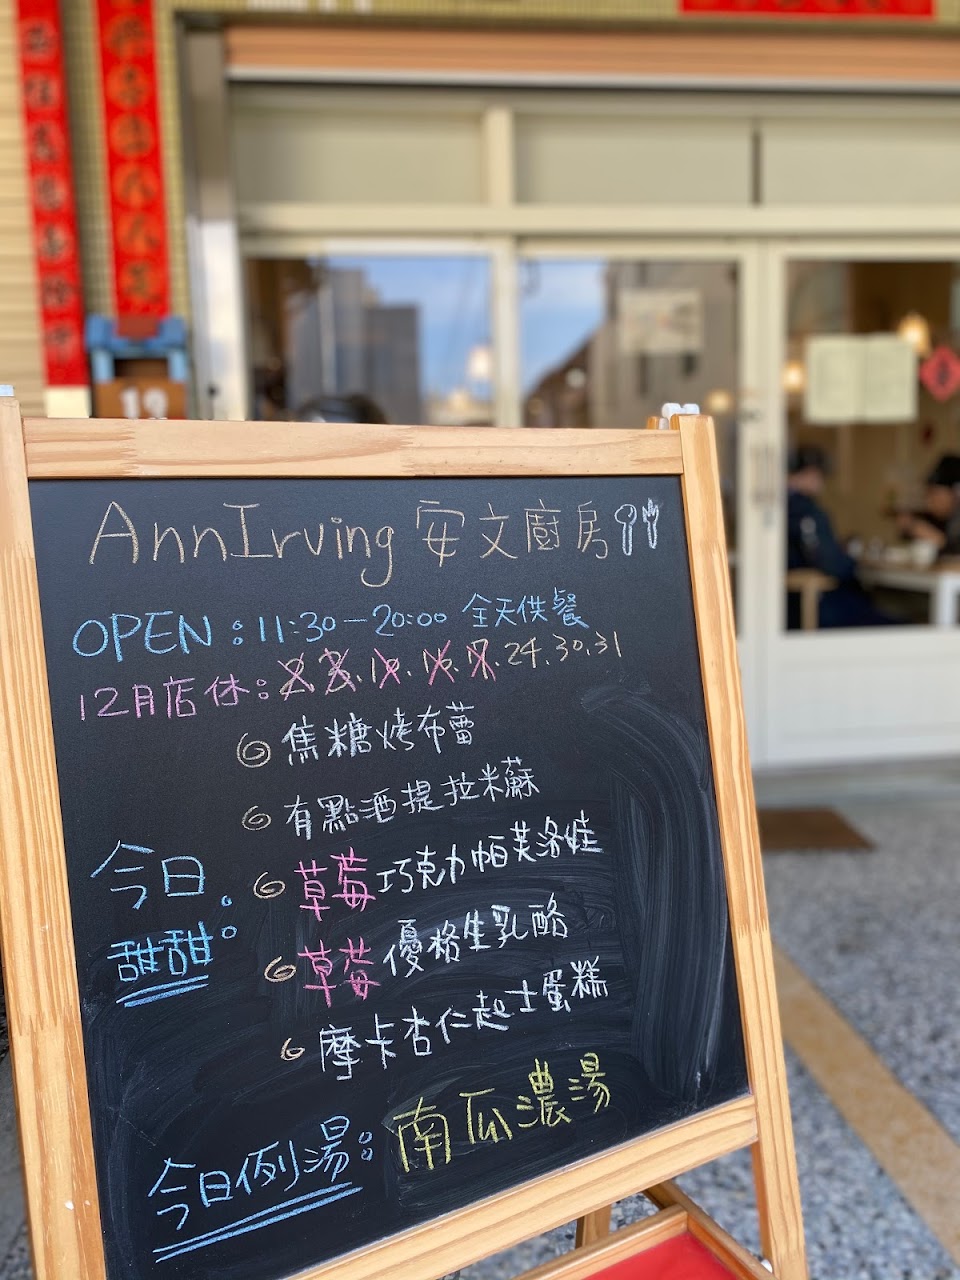 AnnIrving 安文廚房
OPEN：11:30-20:00 全天供餐
12月店休：24.30.31
焦糖烤布蕾
有點酒提拉米蘇
今日甜甜：
草莓巧克力帕芙洛娃
草莓優格生乳酪
摩卡杏仁起士蛋糕
今日例湯：南瓜濃湯
19